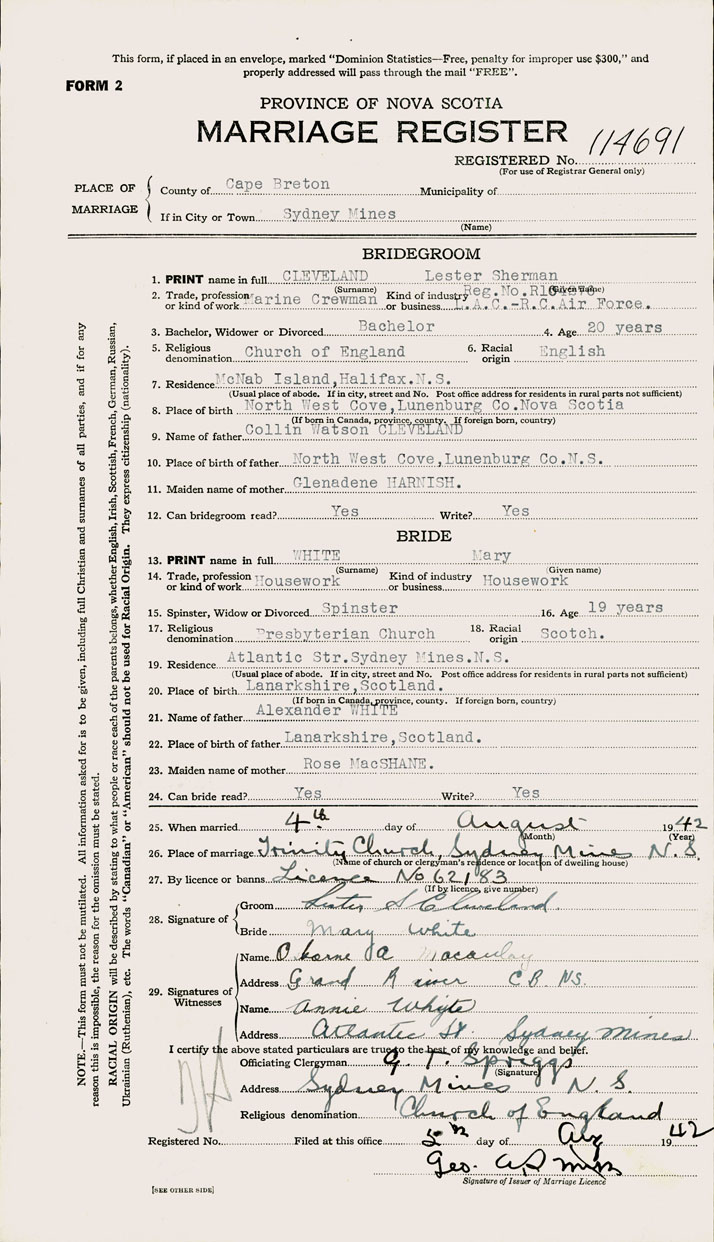 This form, if placed in an envelope, marked "Dominion Statistics—Free, penalty for improper use $300," and
properly addressed will pass through the mail "FREE".
FORM 2
PROVINCE OF NOVA SCOTIA
MARRIAGE REGISTER
REGISTERED No. 114691
(For use of Registrar General only)
PLACE OF MARRIAGE
County of Cape Breton Municipality of
If in City or Town Sydney Mines
(Name)
BRIDEGROOM
1. PRINT name in full CLEVELAND Lester Sherman
(Surname) (Given name)
2. Trade, profession or kind of work Marine Crewman Kind of industry or business Reg.No. L.A.C.-R.C.Air Force.
3. Bachelor, Widower or Divorced Bachelor 4. Age 20 years
5. Religious denomination Church of England 6. Racial origin English
7. Residence McNab Island,Halifax.N.S.
(Usual place of abode. If in city, street and No. Post office address for residents in rural parts not sufficient)
8. Place of birth North West Cove,Lunenburg Co.Nova Scotia
(If born in Canada, province, county. If foreign born, country)
9. Name of father Collin Watson CLEVELAND
10. Place of birth of father North West Cove,Lunenburg Co.N.S.
11. Maiden name of mother Glenadene HARNISH.
12. Can bridegroom read? Yes Write? Yes
BRIDE
13. PRINT name in full WHITE Mary
(Surname) (Given name)
14. Trade, profession or kind of work Housework Kind of industry or business Housework
15. Spinster, Widow or Divorced Spinster 16. Age 19 years
17. Religious denomination Presbyterian Church 18. Racial origin Scotch.
19. Residence Atlantic Str.Sydney Mines.N.S.
(Usual place of abode. If in city, street and No. Post office address for residents in rural parts not sufficient)
20. Place of birth Lanarkshire,Scotland.
(If born in Canada, province, county. If foreign born, country)
21. Name of father Alexander WHITE
22. Place of birth of father Lanarkshire,Scotland.
23. Maiden name of mother Rose MacSHANE.
24. Can bride read? Yes Write? Yes
25. When married 4th day of August 1942
(Month) (Year)
26. Place of marriage Trinity Church, Sydney Mines N.S.
(Name of church or clergyman's residence or location of dwelling house)
27. By licence or banns Licence No 62183
(If by licence, give number)
28. Signature of
Groom Lester S Cleveland
Bride Mary White
29. Signatures of Witnesses
Name Macaulay
Address Grand River C B NS.
Name Annie Whyte
Address Atlantic St. Sydney Mines
I certify the above stated particulars are true to the best of my knowledge and belief.
Officiating Clergyman G. T. Spriggs
(Signature)
Address Sydney Mines N.S.
Religious denomination Church of England
Registered No. Filed at this office 5th day of Aug 1942
Geo.
Signature of Issuer of Marriage Licence
[SEE OTHER SIDE]
NOTE.—This form must not be mutilated. All information asked for is to be given, including full Christian and surnames of all parties, and if for any
reason this is impossible, the reason for the omission must be stated.
RACIAL ORIGIN will be described by stating to what people or race each of the parents belongs, whether English, Irish, Scottish, French, German, Russian,
Ukrainian (Ruthenian), etc. The words "Canadian" or "American" should not be used for Racial Origin. They express citizenship (nationality).